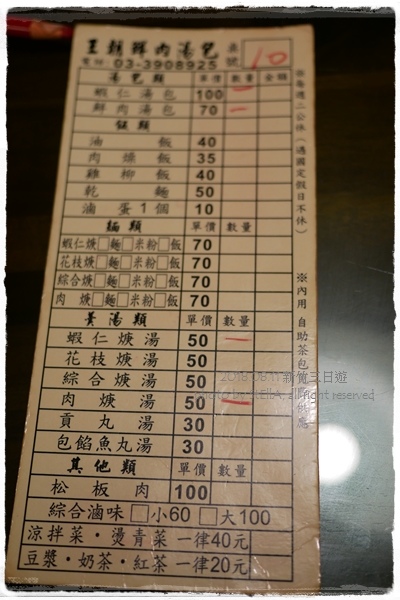 王朝鮮肉湯包 桌號 10
電話:03-3908925
湯包類 單價 數量 金額
蝦仁湯包 100 一
鮮肉湯包 70 一
飯類
油飯 40
肉燥飯 35
雞柳飯 40
乾麵 50
滷蛋1個 10
麵類 單價 數量
蝦仁焿□麵□米粉□飯 70
花枝焿□麵□米粉□飯 70
綜合焿□麵□米粉□飯 70
肉焿□麵□米粉□飯 70
羹湯類 單價 數量
蝦仁焿湯 50 一
花枝焿湯 50
綜合焿湯 50
肉焿湯 50 一
貢丸湯 30
包餡魚丸湯 30
其他類 單價 數量
松板肉 100
綜合滷味 □小60 □大100
涼拌菜・燙青菜 一律40元
豆漿・奶茶・紅茶 一律20元
※每週二公休(遇國定假日不休)
※內用 自助茶包
2018.08.11新竹三日遊
all right reserved